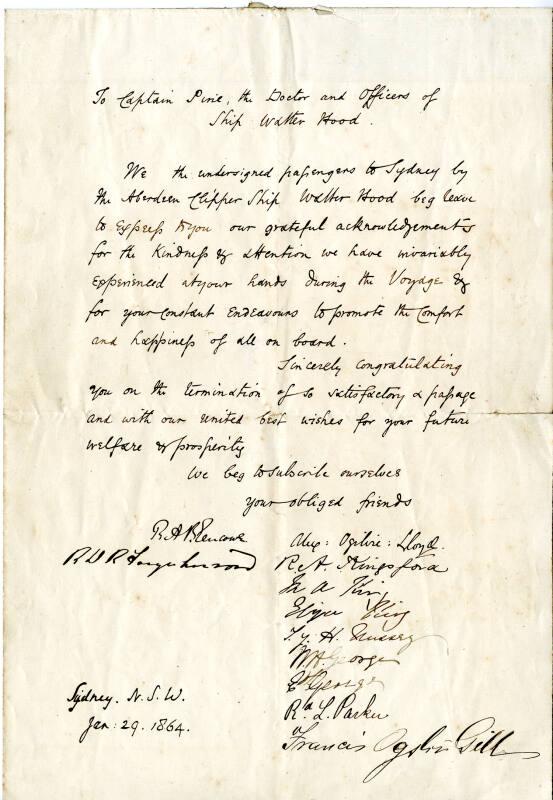 To Captain Pirie, the Doctor and Officers of
Ship Walter Hood.
We the undersigned passengers to Sydney by
the Aberdeen Clipper Ship Walter Hood beg leave
to Express to you our grateful acknowledgements
for the Kindness & attention we have invariably
Experienced at your hands during the Voyage &
for your Constant Endeavours to promote the Comfort
and happiness of all on board.
Sincerely congratulating
you on the termination of so satisfactory a passage
and with our united best wishes for your future
welfare & prosperity
We beg to subscribe ourselves
your obliged friends
Alex: Ogilvie: Lloyd.
R. A. Kingsford
King
H.
W. H. George
George
R. L. Parker
Francis Ogilvie Gill
Sydney. N. S. W.
Jan: 29. 1864.